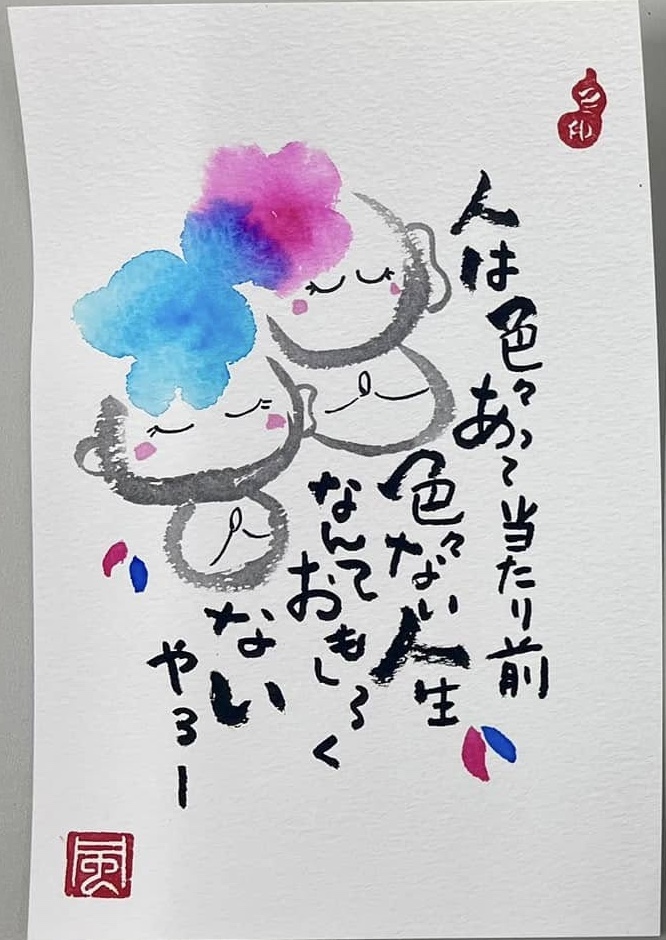 人は色々あって当たり前
色々ない人生
なんておもしろく
ない
やろー
風